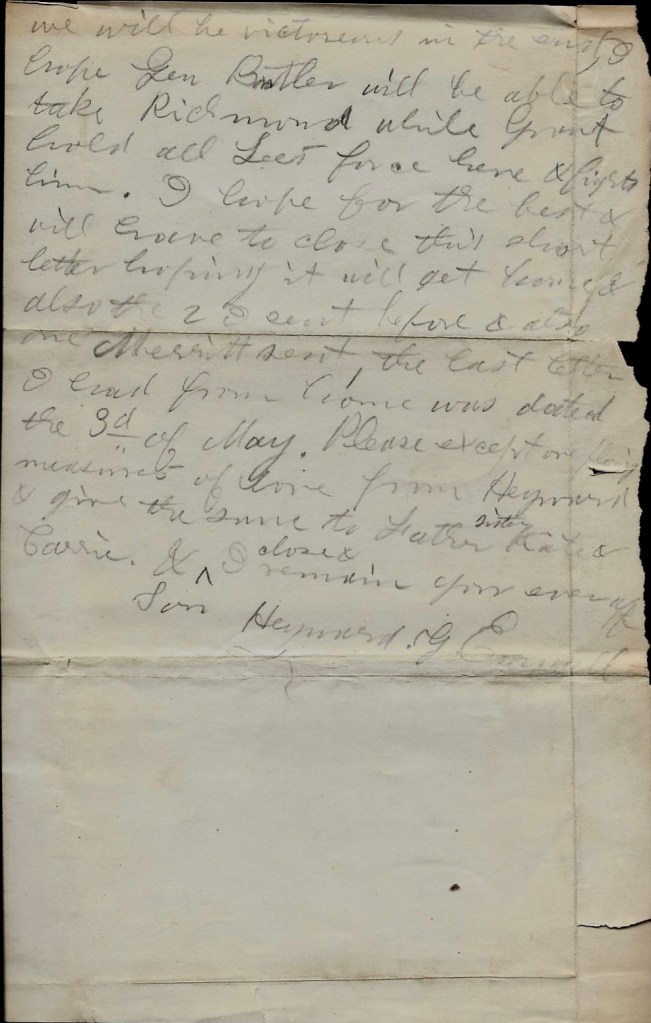 we will be victoreous in the end, I
hope Gen Butler will be able to
take Richmond while Grant
hold all Lees force here & fights
him. I hope for the best &
will have to close this short
letter hoping it will get home &
also the 2 I sent before & also
one Merritt sent, the last letter
I had from home was dated
the 3d of May. Please except one
measures of love from Heyward
& give the same to Father Sister Kate &
Carrie. & I close & remain your ever aff
Son Heyward. G Emmell